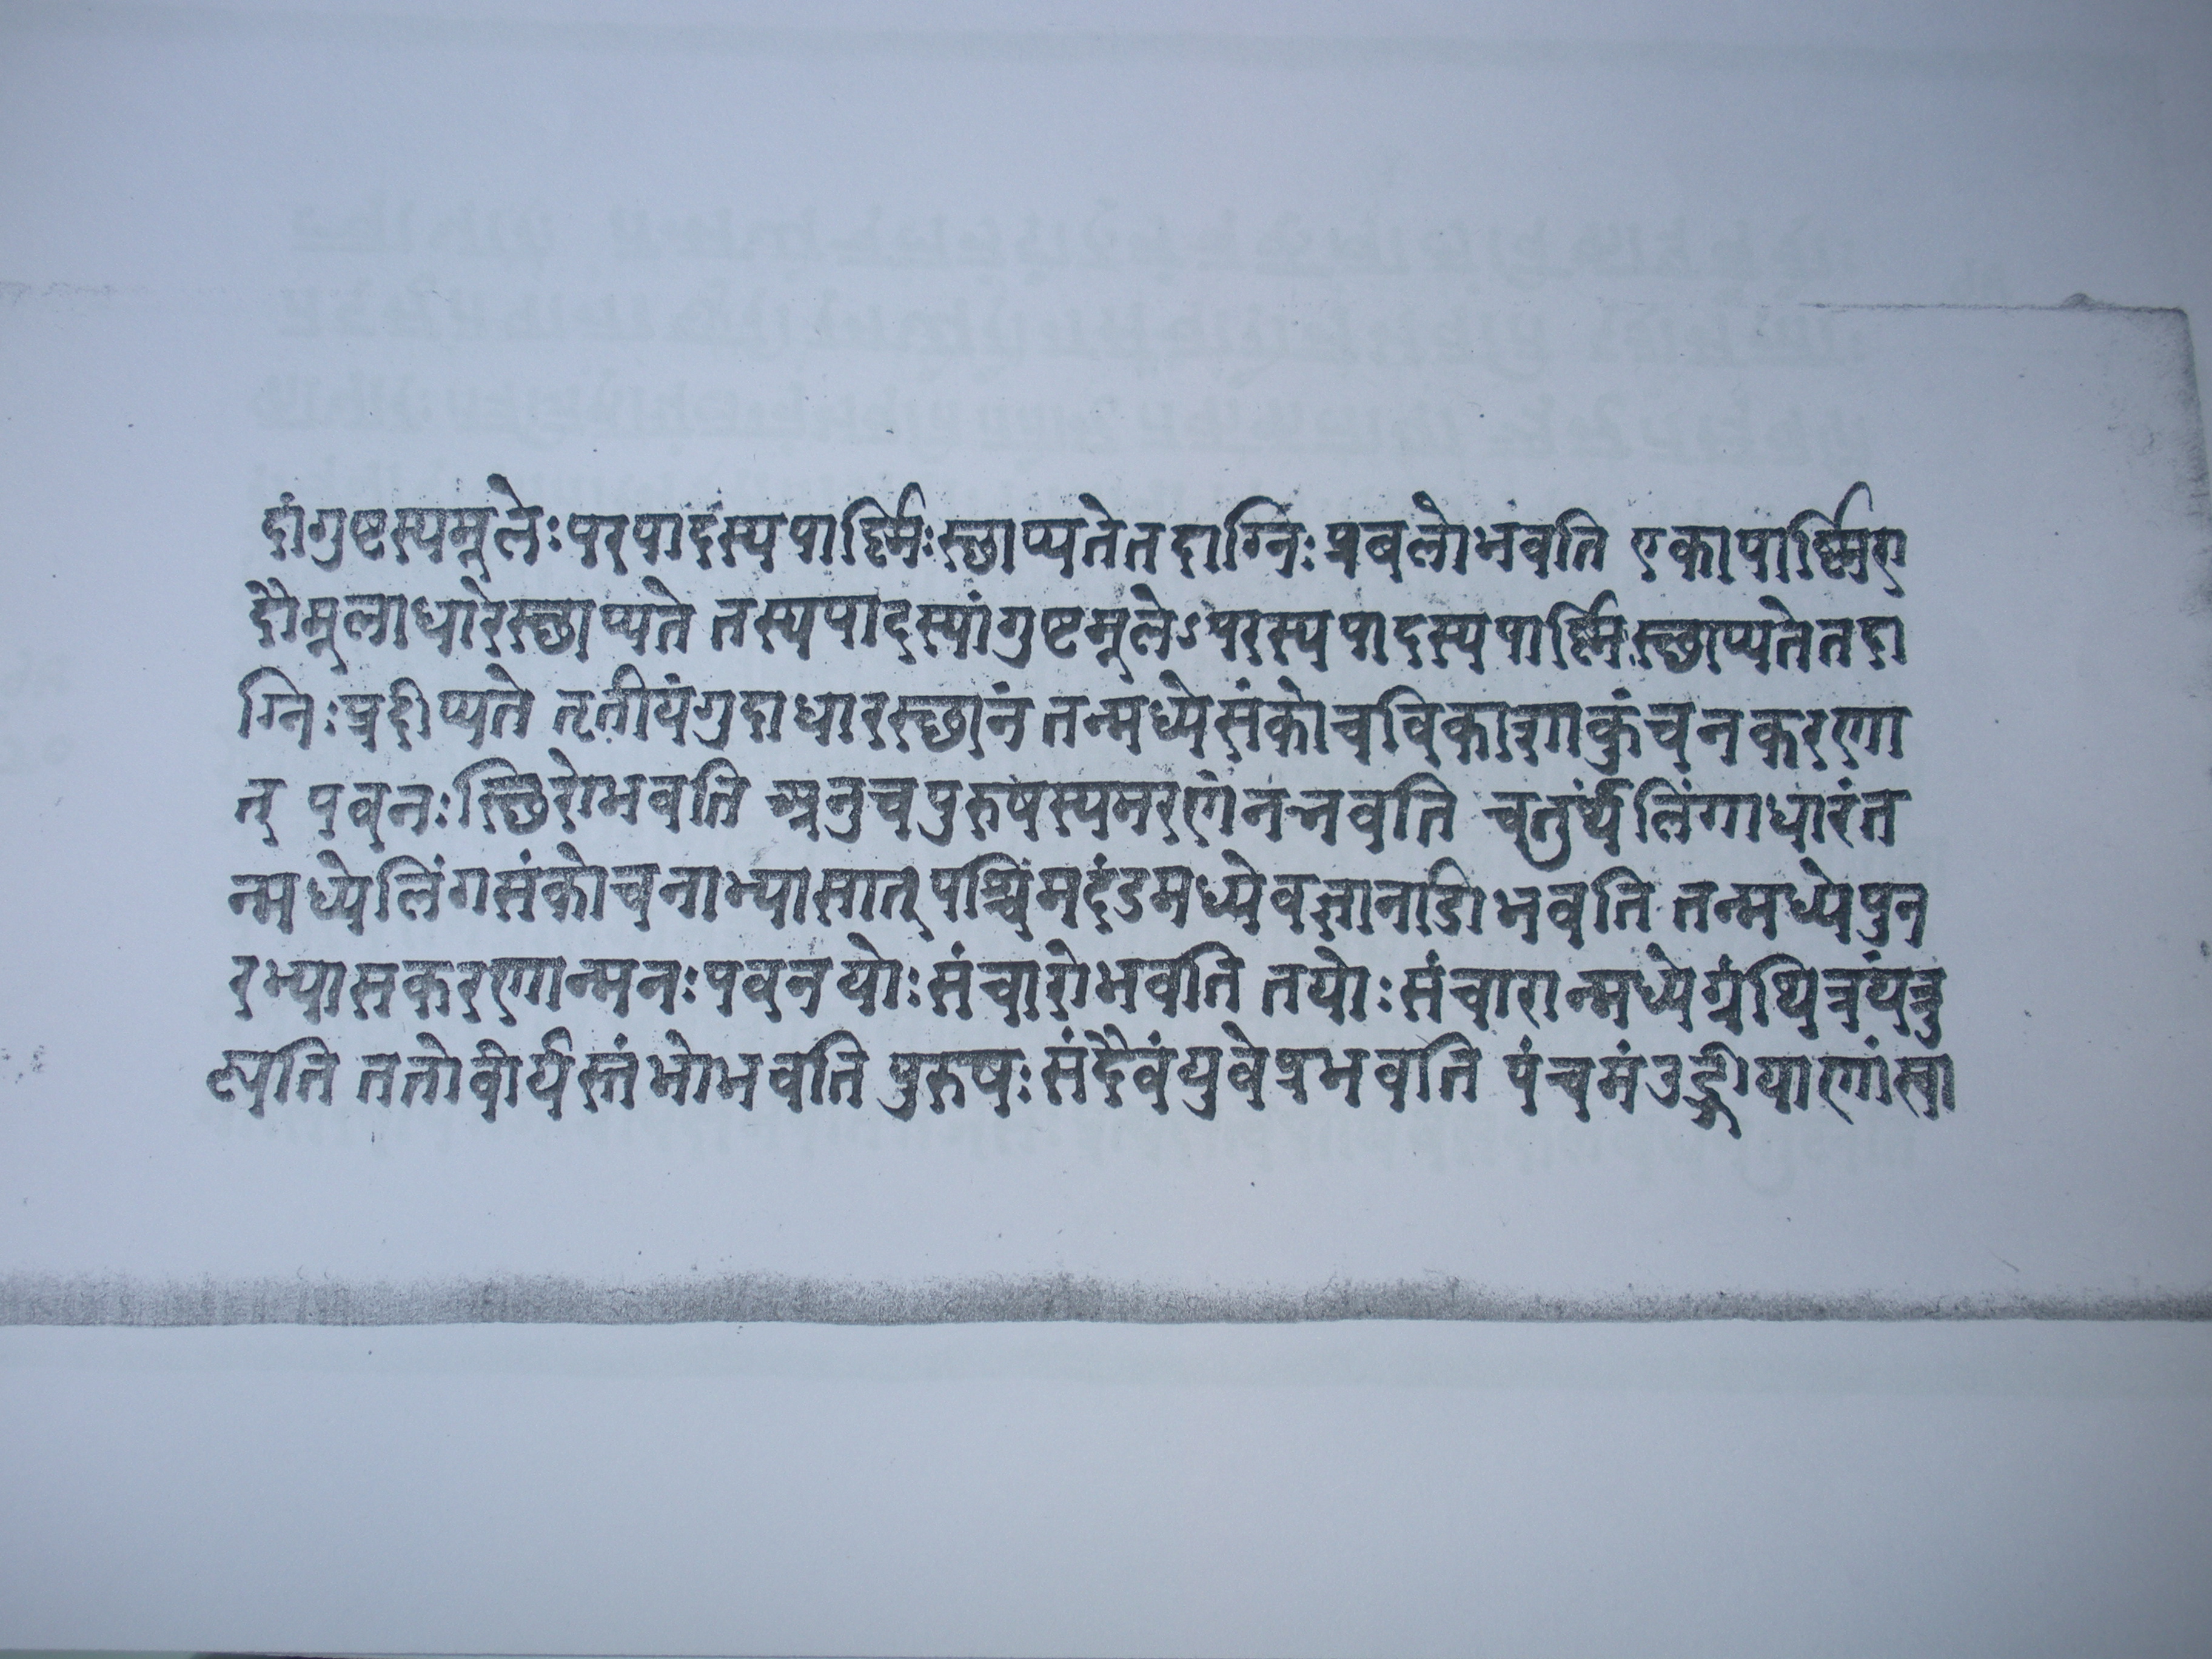 दांगुष्टस्यमूलेः परपादस्यपार्ष्णिः स्छाप्यतेतदाग्निः प्रबलोभवति एकापार्ष्णिरा
दौमूलाधारेस्छाप्यते तस्यपादस्यांगुष्टमूलेऽपरस्यपादस्यपार्ष्णिः स्छाप्यतेतदा
ग्निः प्रदीप्यते तृतीयंगुदाधारस्छानं तन्मध्येसंकोचविकाशाकुंचनकरणा
त् पवनः स्छिरोभवति अनुचपुरुषस्यमरणंनभवति चतुर्थंलिंगाधारंत
न्मध्येलिंगसंकोचनाभ्यासात् पश्चिमदंडमध्येवज्ञानाडीभवति तन्मध्येपुन
रभ्यासकरणान्मनः पवनयोः संचारोभवति तयोः संचारान्मध्येग्रंथित्रयंत्रु
ट्यति ततोवीर्यस्तंभोभवति पुरुषः सदैवंयुवेत्रभवति पंचमंउड्डीयाणंस्वा